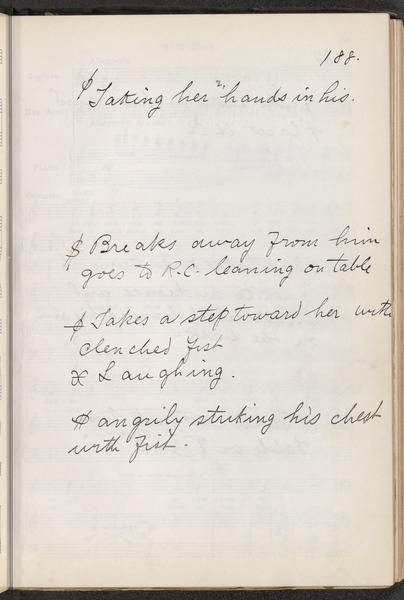 188.
$ Taking her 2 hands in his.
$ Breaks away from him
goes to R.C. leaning on table
$ Takes a step toward her with
clenched fist
X Laughing.
$ angrily striking his chest
with fist.